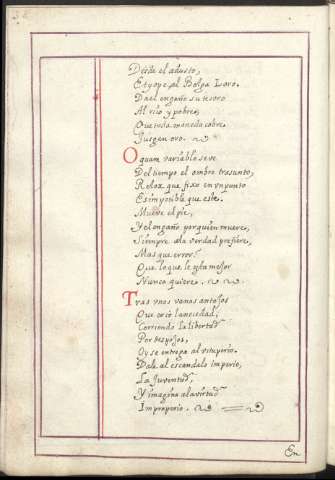 Desde el adusto,
Etyope, al Belga Loro.
Da el engaño su tesoro
Al rico y pobre,
Que toda moneda cobre
Juzgen oro.
O quam variable se ve
Del tiempo el ombre trasunto,
Relox que fixo en vn punto
Es imposibIe que este.
Mueve el pie,
Y el engaño por quien muere,
Siempre ala verdad prefiere,
Mas que error?
Que lo que le esta mejor
Nunca quiere.
Tras vnos vanos antojos
Que crio la neciedad,
Corriendo la libertad
Por despojos,
Oy se entrega al vituperio.
Dale al escandalo imperio,
La Juventud,
Y imagina ala virtud
Improperio.
En